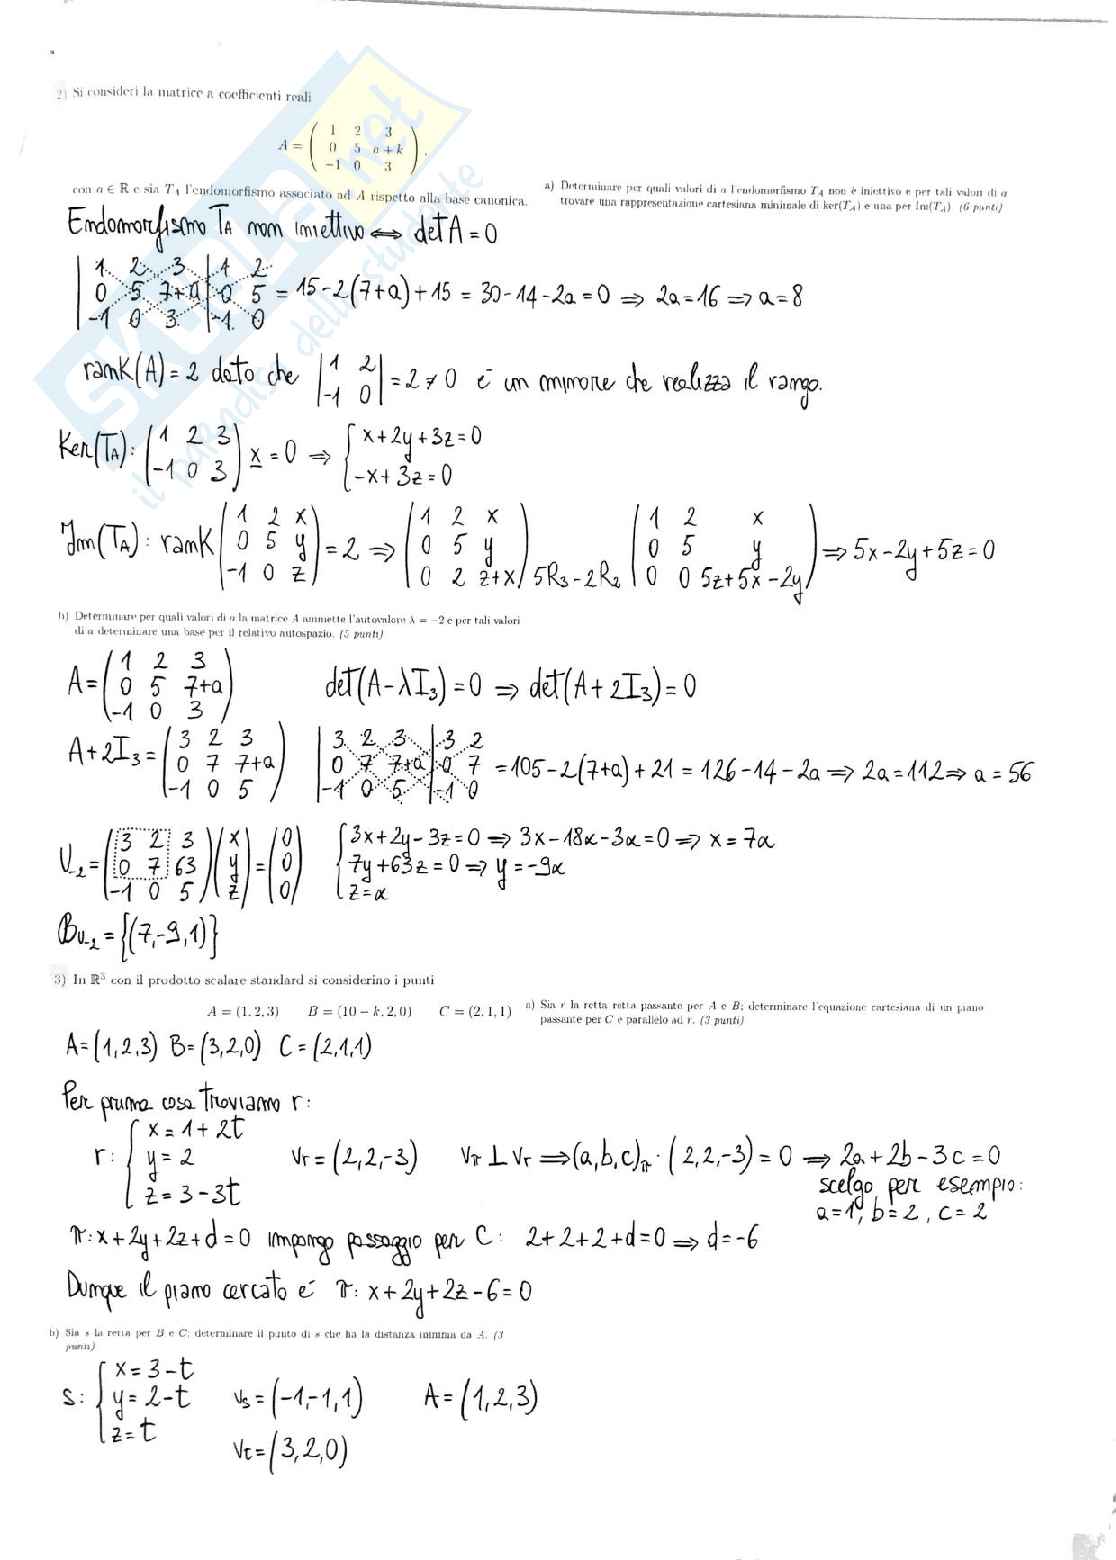 2) Si consideri la matrice a coefficienti reali
A = ( 1 2 3
0 5 a + k
−1 0 3 ) .
con a ∈ R e sia T_A l'endomorfismo associato ad A rispetto alla base canonica.
a) Determinare per quali valori di a l'endomorfismo T_A non è iniettivo e per tali valori di a
trovare una rappresentazione cartesiana minimale di ker(T_A) e una per Im(T_A) (6 punti)
Endomorfismo T_A non iniettivo ⟺ det A = 0
| 1 2 3 | 1 2
| 0 5 7+a | 0 5 = 15 - 2(7+a) + 15 = 30 - 14 - 2a = 0 ⇒ 2a = 16 ⇒ a = 8
| -1 0 3 | -1 0
rank(A) = 2 dato che | 1 2 ; -1 0 | = 2 ≠ 0 è un minore che realizza il rango.
Ker(T_A): ( 1 2 3 ; -1 0 3 ) x = 0 ⇒ { x + 2y + 3z = 0 ; -x + 3z = 0
Im(T_A): rank ( 1 2 x ; 0 5 y ; -1 0 z ) = 2 ⇒ ( 1 2 x ; 0 5 y ; 0 2 z+x ) 5R3 - 2R2 ( 1 2 x ; 0 5 y ; 0 0 5z+5x-2y ) ⇒ 5x - 2y + 5z = 0
b) Determinare per quali valori di a la matrice A ammette l'autovalore λ = −2 e per tali valori
di a determinare una base per il relativo autospazio. (5 punti)
A = ( 1 2 3 ; 0 5 7+a ; -1 0 3 ) det(A - λI3) = 0 ⇒ det(A + 2I3) = 0
A + 2I3 = ( 3 2 3 ; 0 7 7+a ; -1 0 5 ) | 3 2 3 | 3 2 ; 0 7 7+a | 0 7 ; -1 0 5 | -1 0 = 105 - 2(7+a) + 21 = 126 - 14 - 2a ⇒ 2a = 112 ⇒ a = 56
U₂ = ( 3 2 3 ; 0 7 63 ; -1 0 5 ) ( x ; y ; z ) = ( 0 ; 0 ; 0 ) { 3x + 2y - 3z = 0 ⇒ 3x - 18α - 3α = 0 ⇒ x = 7α
7y + 63z = 0 ⇒ y = -9α
z = α
B_U₋₂ = {(7, -9, 1)}
3) In R³ con il prodotto scalare standard si considerino i punti
A = (1, 2, 3) B = (10 − k, 2, 0) C = (2, 1, 1)
a) Sia r la retta retta passante per A e B; determinare l'equazione cartesiana di un piano
passante per C e parallelo ad r. (3 punti)
A = (1, 2, 3) B = (3, 2, 0) C = (2, 1, 1)
Per prima cosa troviamo r:
r: { x = 1 + 2t
y = 2
z = 3 - 3t
V_r = (2, 2, -3) V_π ⊥ V_r ⟹ (a, b, c)_π · (2, 2, -3) = 0 ⇒ 2a + 2b - 3c = 0
scelgo per esempio:
a = 1, b = 2, c = 2
π: x + 2y + 2z + d = 0 impongo passaggio per C: 2 + 2 + 2 + d = 0 ⇒ d = -6
Dunque il piano cercato è π: x + 2y + 2z - 6 = 0
b) Sia s la retta per B e C; determinare il punto di s che ha la distanza minima da A. (3
punti)
s: { x = 3 - t
y = 2 - t
z = t
V_s = (-1, -1, 1) A = (1, 2, 3)
V_t = (3, 2, 0)
SKUOLA.net
il paradiso dello studente